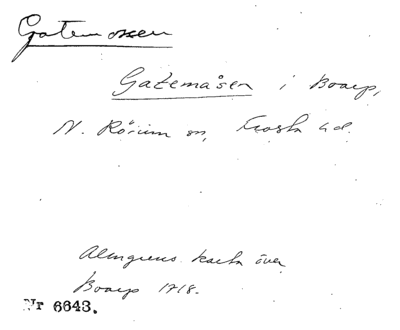 Gatemossen
Gatemåsen i Boarp,
N. Rörum sn, Frosta hd.
Almgrens karta över
Boarp 1718.
Nr 6643.